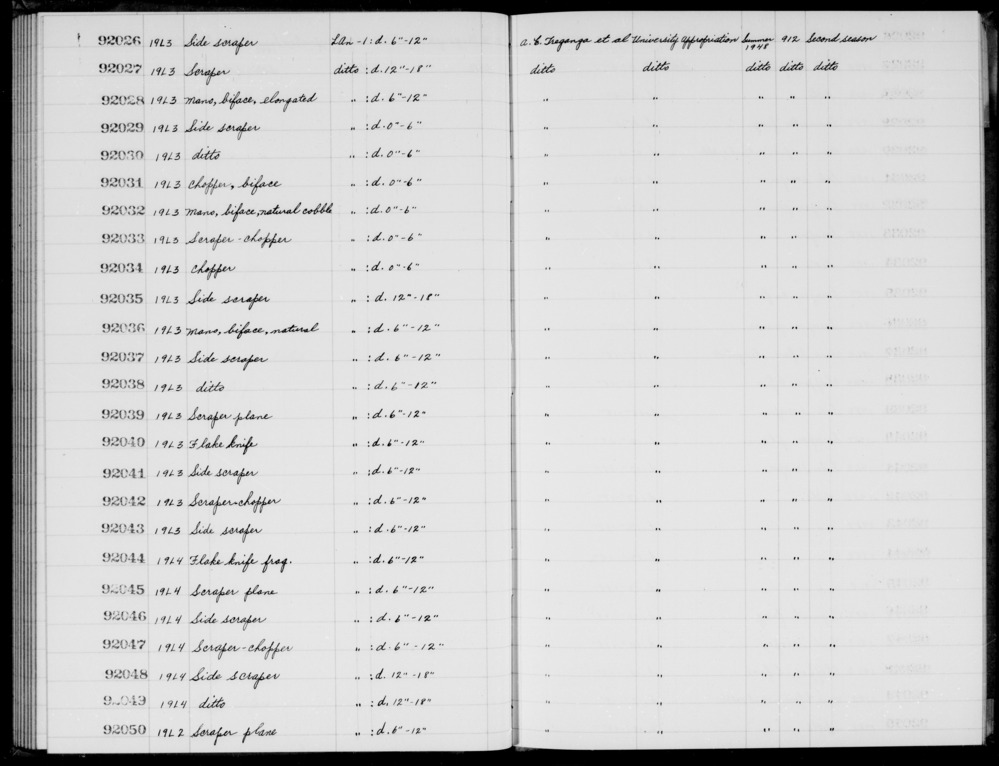 92026 19L3 Side scraper LAn-1 : d. 6"-12" A. E. Treganza et al University Appropriation Summer 1948 912 Second season
92027 19L3 Scraper ditto : d. 12"-18" ditto ditto ditto ditto ditto
92028 19L3 Mano, biface, elongated " : d. 6"-12" " " " " "
92029 19L3 Side scraper " : d. 0"-6" " " " " "
92030 19L3 ditto " : d. 0"-6" " " " " "
92031 19L3 Chopper, biface " : d. 0"-6" " " " " "
92032 19L3 Mano, biface, natural cobble " : d. 0"-6" " " " " "
92033 19L3 Scraper-chopper " : d. 0"-6" " " " " "
92034 19L3 Chopper " : d. 0"-6" " " " " "
92035 19L3 Side scraper " : d. 12"-18" " " " " "
92036 19L3 Mano, biface, natural " : d. 6"-12" " " " " "
92037 19L3 Side scraper " : d. 6"-12" " " " " "
92038 19L3 ditto " : d. 6"-12" " " " " "
92039 19L3 Scraper plane " : d. 6"-12" " " " " "
92040 19L3 Flake knife " : d. 6"-12" " " " " "
92041 19L3 Side scraper " : d. 6"-12" " " " " "
92042 19L3 Scraper-chopper " : d. 6"-12" " " " " "
92043 19L3 Side scraper " : d. 6"-12" " " " " "
92044 19L4 Flake knife frag. " : d. 6"-12" " " " " "
92045 19L4 Scraper plane " : d. 6"-12" " " " " "
92046 19L4 Side scraper " : d. 6"-12" " " " " "
92047 19L4 Scraper-chopper " : d. 6"-12" " " " " "
92048 19L4 Side scraper " : d. 12"-18" " " " " "
92049 19L4 ditto " : d. 12"-18" " " " " "
92050 19L2 Scraper plane " : d. 6"-12" " " " " "